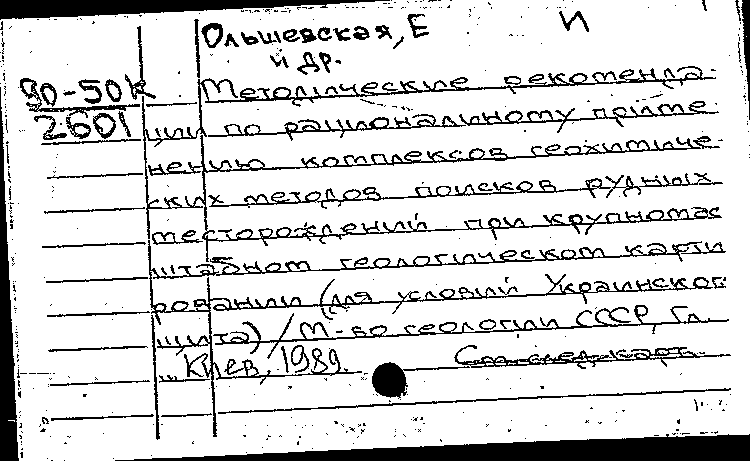 Ольшевская, Е И
и др.
90-50к Методические рекоменда-
2601 ции по рациональному приме-
нению комплексов геохимиче-
ских методов поисков рудных
месторождений при крупномас
штабном геологическом карти
ровании (для условий Украинског
щита) / М-во геологии СССР, Гл.
... Киев, 1989. См. след. карт.